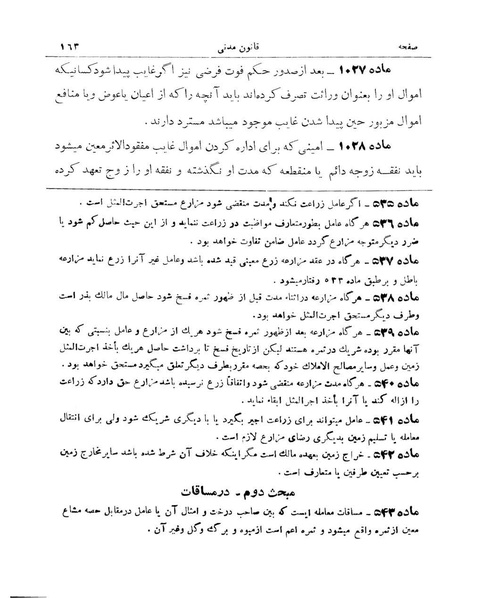 صفحه قانون مدنی ۱۶۳
ماده ۱۰۲۷ ـ بعد از صدور حکم فوت فرضی نیز اگر غایب پیدا شود کسانیکه
اموال او را بعنوان وراثت تصرف کرده‌اند باید آنچه را که از اعیان یا عوض و یا منافع
اموال مزبور حین پیدا شدن غایب موجود میباشد مسترد دارند .
ماده ۱۰۲۸ ـ امینی که برای اداره کردن اموال غایب مفقودالاثر معین میشود
باید نفقه زوجه دائم یا منقطعه که مدت او نگذشته و نفقه او را زوج تعهد کرده
ماده ۵۳۵ ـ اگر عامل زراعت نکند و مدت منقضی شود مزارع مستحق اجرت‌المثل است .
ماده ۵۳۶ ـ هر گاه عامل بطور متعارف مواظبت در زراعت ننماید و از این حیث حاصل کم شود یا
ضرر دیگر متوجه مزارع گردد عامل ضامن تفاوت خواهد بود .
ماده ۵۳۷ ـ هر گاه در عقد مزارعه زرع معینی قید شده باشد وعامل غیر آنرا زرع نماید مزارعه
باطل و بر طبق ماده ۵۳۳ رفتار میشود .
ماده ۵۳۸ ـ هر گاه مزارعه در اثناء مدت قبل از ظهور ثمره فسخ شود حاصل مال مالك بذر است
وطرف دیگر مستحق اجرت‌المثل خواهد بود .
ماده ۵۳۹ ـ هر گاه مزارعه بعد از ظهور ثمره فسخ شود هر یك از مزارع و عامل بنسبتی که بین
آنها مقرر بوده شریك در ثمره هستند لیکن از تاریخ فسخ تا برداشت حاصل هر یك بأخذ اجرت‌المثل
زمین وعمل وسایر مصالح الاملاك خود که بحصه مقرر بطرف دیگر تعلق میگیرد مستحق خواهد بود .
ماده ۵۴۰ ـ هر گاه مدت مزارعه منقضی شود واتفاقاً زرع نرسیده باشد مزارع حق دارد که زراعت
را ازاله کند یا آنرا بأخذ اجرت‌المثل ابقاء نماید .
ماده ۵۴۱ ـ عامل میتواند برای زراعت اجیر بگیرد یا با دیگری شریك شود ولی برای انتقال
معامله یا تسلیم زمین بدیگری رضای مزارع لازم است .
ماده ۵۴۲ ـ خراج زمین بعهده مالك است مگر اینکه خلاف آن شرط شده باشد سایر مخارج زمین
برحسب تعیین طرفین یا متعارف است .
مبحث دوم ـ در مساقات
ماده ۵۴۳ ـ مساقات معامله ایست که بین صاحب درخت و امثال آن با عامل در مقابل حصه مشاع
معین از ثمره واقع میشود و ثمره اعم است از میوه و برگ وگل وغیر آن .